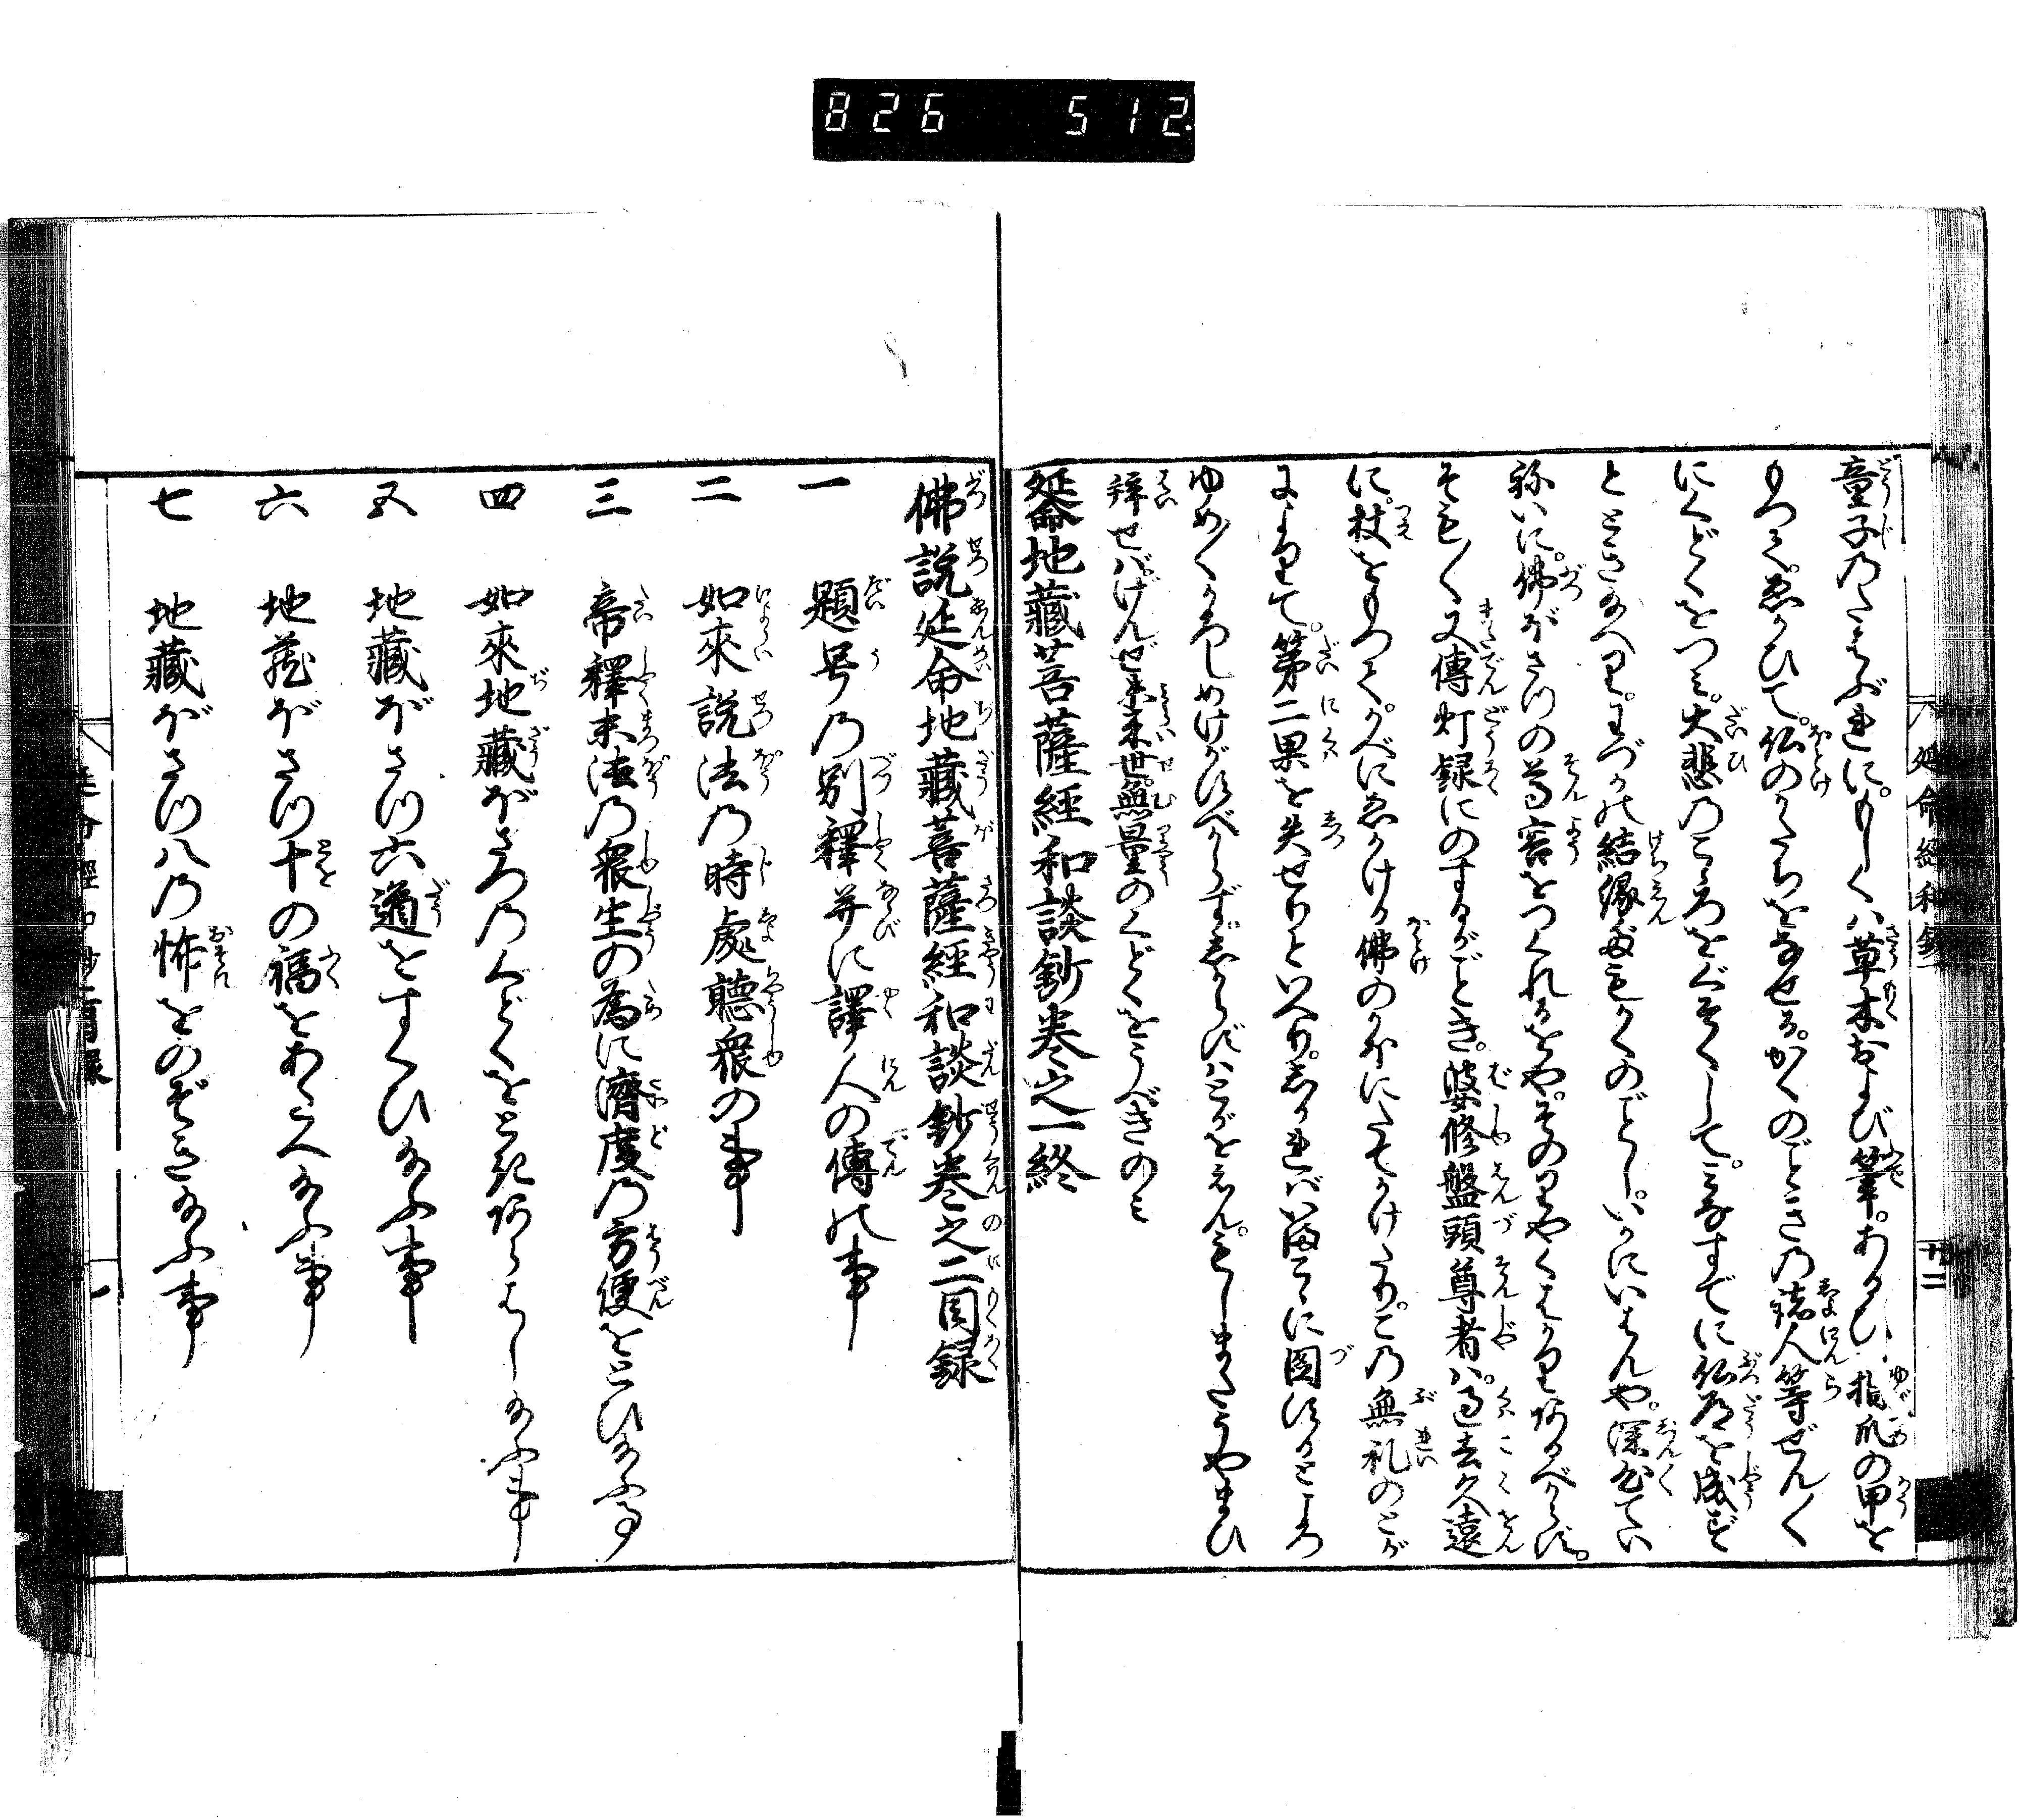 826 512
延命經和談鈔
廿二
童子のたはふれに。もしくハ草木および筆。あるひハ指爪の甲を
もつて。ゑがひて。仏のかたちをなせる。かくのごときの諸人等ぜん〳〵
にくどくをつミ。大悲のこゝろをぐそくして。ミなすでに仏道を成ず
ととき給へり。わづかの結縁だもかくのごとし。いかにいはんや。深心ていねいに
佛ぼさつの尊容をつくれるをや。そのりやくはかりあるべからず。
そも〳〵又傳灯録にのするがごとき。婆修盤頭尊者ハ。過去久遠
に。杖をもつて。かべにゑがける佛のかほにたてかけたり。この無礼のとが
によりて。第二果を失せりといへり。しかればいまこゝに圖するところ
ゆめ〳〵かろしめけがすべからず。しからずハとがをえん。もしまたうやまひ
拜せバ。げんぜ未來世無量のくどくをうべきのミ
延命地藏菩薩經和談鈔卷之一終
佛說延命地藏菩薩經和談鈔卷之二目録
一 題号の別釋并に譯人の傳の事
二 如來說法の時處聽衆の事
三 帝釋末法の衆生の為に濟度の方便をとひ給ふ事
四 如來地藏ぼさつのくどくをときあらはし給ふ事
五 地藏ぼさつ六道をすくひ給ふ事
六 地蔵ぼさつ十の福をあたへ給ふ事
七 地藏ぼさつ八の怖をのぞき給ふ事
延命經和談鈔二目録
一